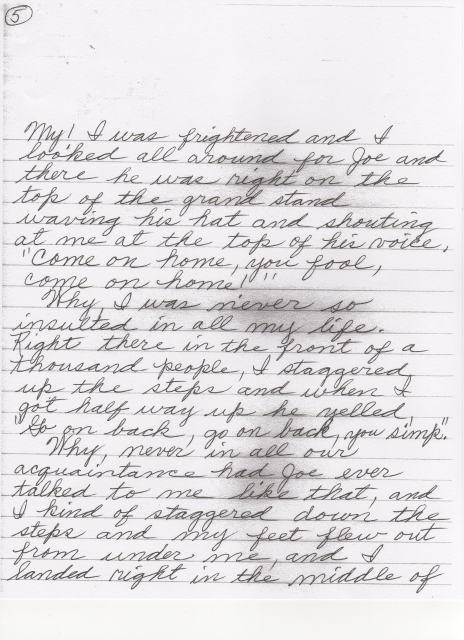 5
My! I was frightened and I
looked all around for Joe and
there he was right on the
top of the grand stand
waving his hat and shouting
at me at the top of his voice,
"Come on home, you fool,
come on home!"
Why, I was never so
insulted in all my life.
Right there in the front of a
thousand people, I staggered
up the steps and when I
got half way up he yelled,
"Go on back, go on back, you simp".
Why, never in all our
acquaintance had Joe ever
talked to me like that, and
I kind of staggered down the
steps and my feet flew out
from under me, and I
landed right in the middle of